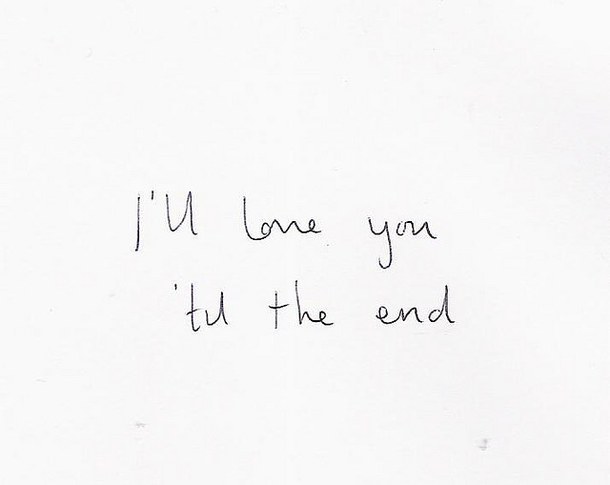 I'll love you
'til the end